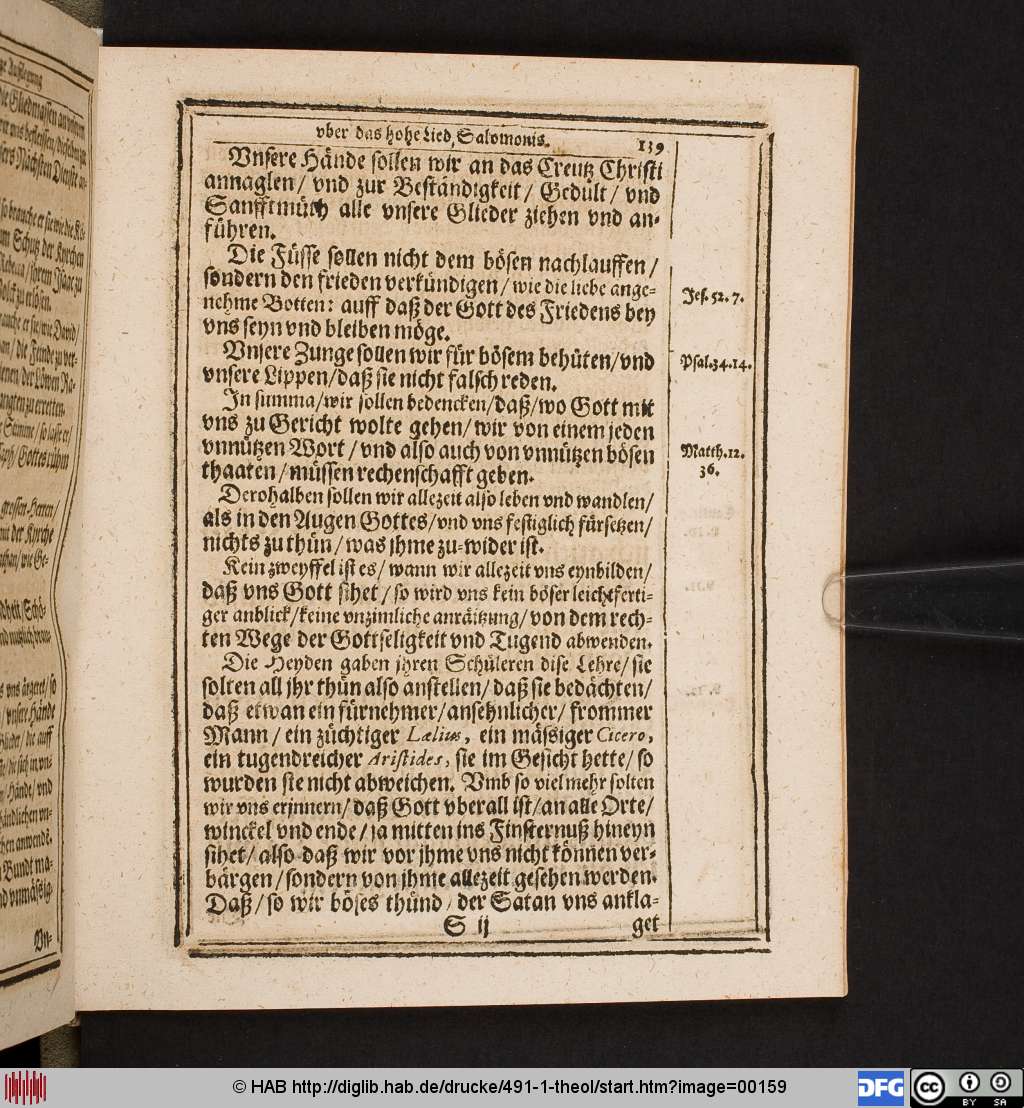 vber das hohe Lied Salomonis. 139
Vnsere Hände sollen wir an das Creutz Christi
annaglen / vnd zur Beständigkeit / Gedült / vnd
Sanfftmüth alle vnsere Glieder ziehen vnd an-
führen.
Die Füsse sollen nicht dem bösen nachlauffen /
sondern den frieden verkündigen / wie die liebe ange-
nehme Botten: auff daß der Gott des Friedens bey
vns seyn vnd bleiben möge.
Jes. 52. 7.
Vnsere Zunge sollen wir für bösem behüten / vnd
vnsere Lippen / daß sie nicht falsch reden.
Psal. 34. 14.
In summa / wir sollen bedencken / daß / wo Gott mit
vns zu Gericht wolte gehen / wir von einem jeden
vnnützen Wort / vnd also auch von vnnützen bösen
thaaten / müssen rechenschafft geben.
Matth. 12.
36.
Derohalben sollen wir allezeit also leben vnd wandlen /
als in den Augen Gottes / vnd vns festiglich fürsetzen /
nichts zu thün / was jhme zu-wider ist.
Kein zweyffel ist es / wann wir allezeit vns eynbilden /
daß vns Gott sihet / so wird vns kein böser leichtferti-
ger anblick / keine vnzimliche anräitzung / von dem rech-
ten Wege der Gottseligkeit vnd Tugend abwenden.
Die Heyden gaben jhren Schüleren dise Lehre / sie
solten all jhr thün also anstellen / daß sie bedächten /
daß etwan ein fürnehmer / ansehnlicher / frommer
Mann / ein züchtiger Lælius, ein mässiger Cicero,
ein tugendreicher Aristides, sie im Gesicht hette / so
wurden sie nicht abweichen. Vmb so viel mehr solten
wir vns erjnnern / daß Gott vberall ist / an alle Orte /
winckel vnd ende / ja mitten ins Finsternuß hineyn
sihet / also daß wir vor jhme vns nicht können ver-
bärgen / sondern von jhme allezeit gesehen werden.
Daß / so wir böses thünd / der Satan vns ankla-
S ij get
© HAB http://diglib.hab.de/drucke/491-1-theol/start.htm?image=00159
DFG
cc BY SA